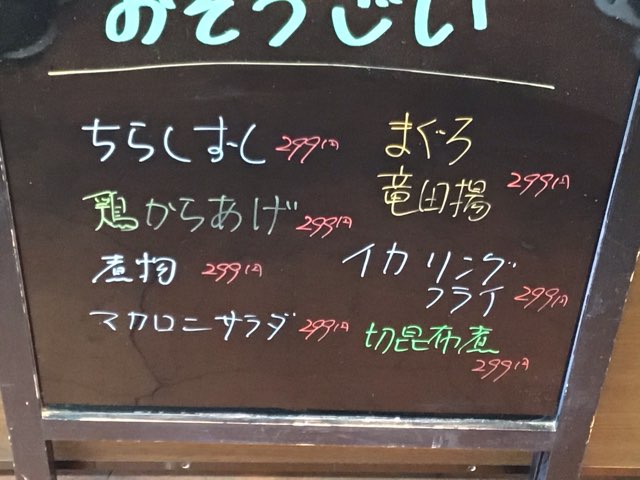 おそうざい
ちらしずし 299円
鶏からあげ 299円
煮物 299円
マカロニサラダ 299円
まぐろ
竜田揚 299円
イカリング
フライ 299円
切昆布煮
299円